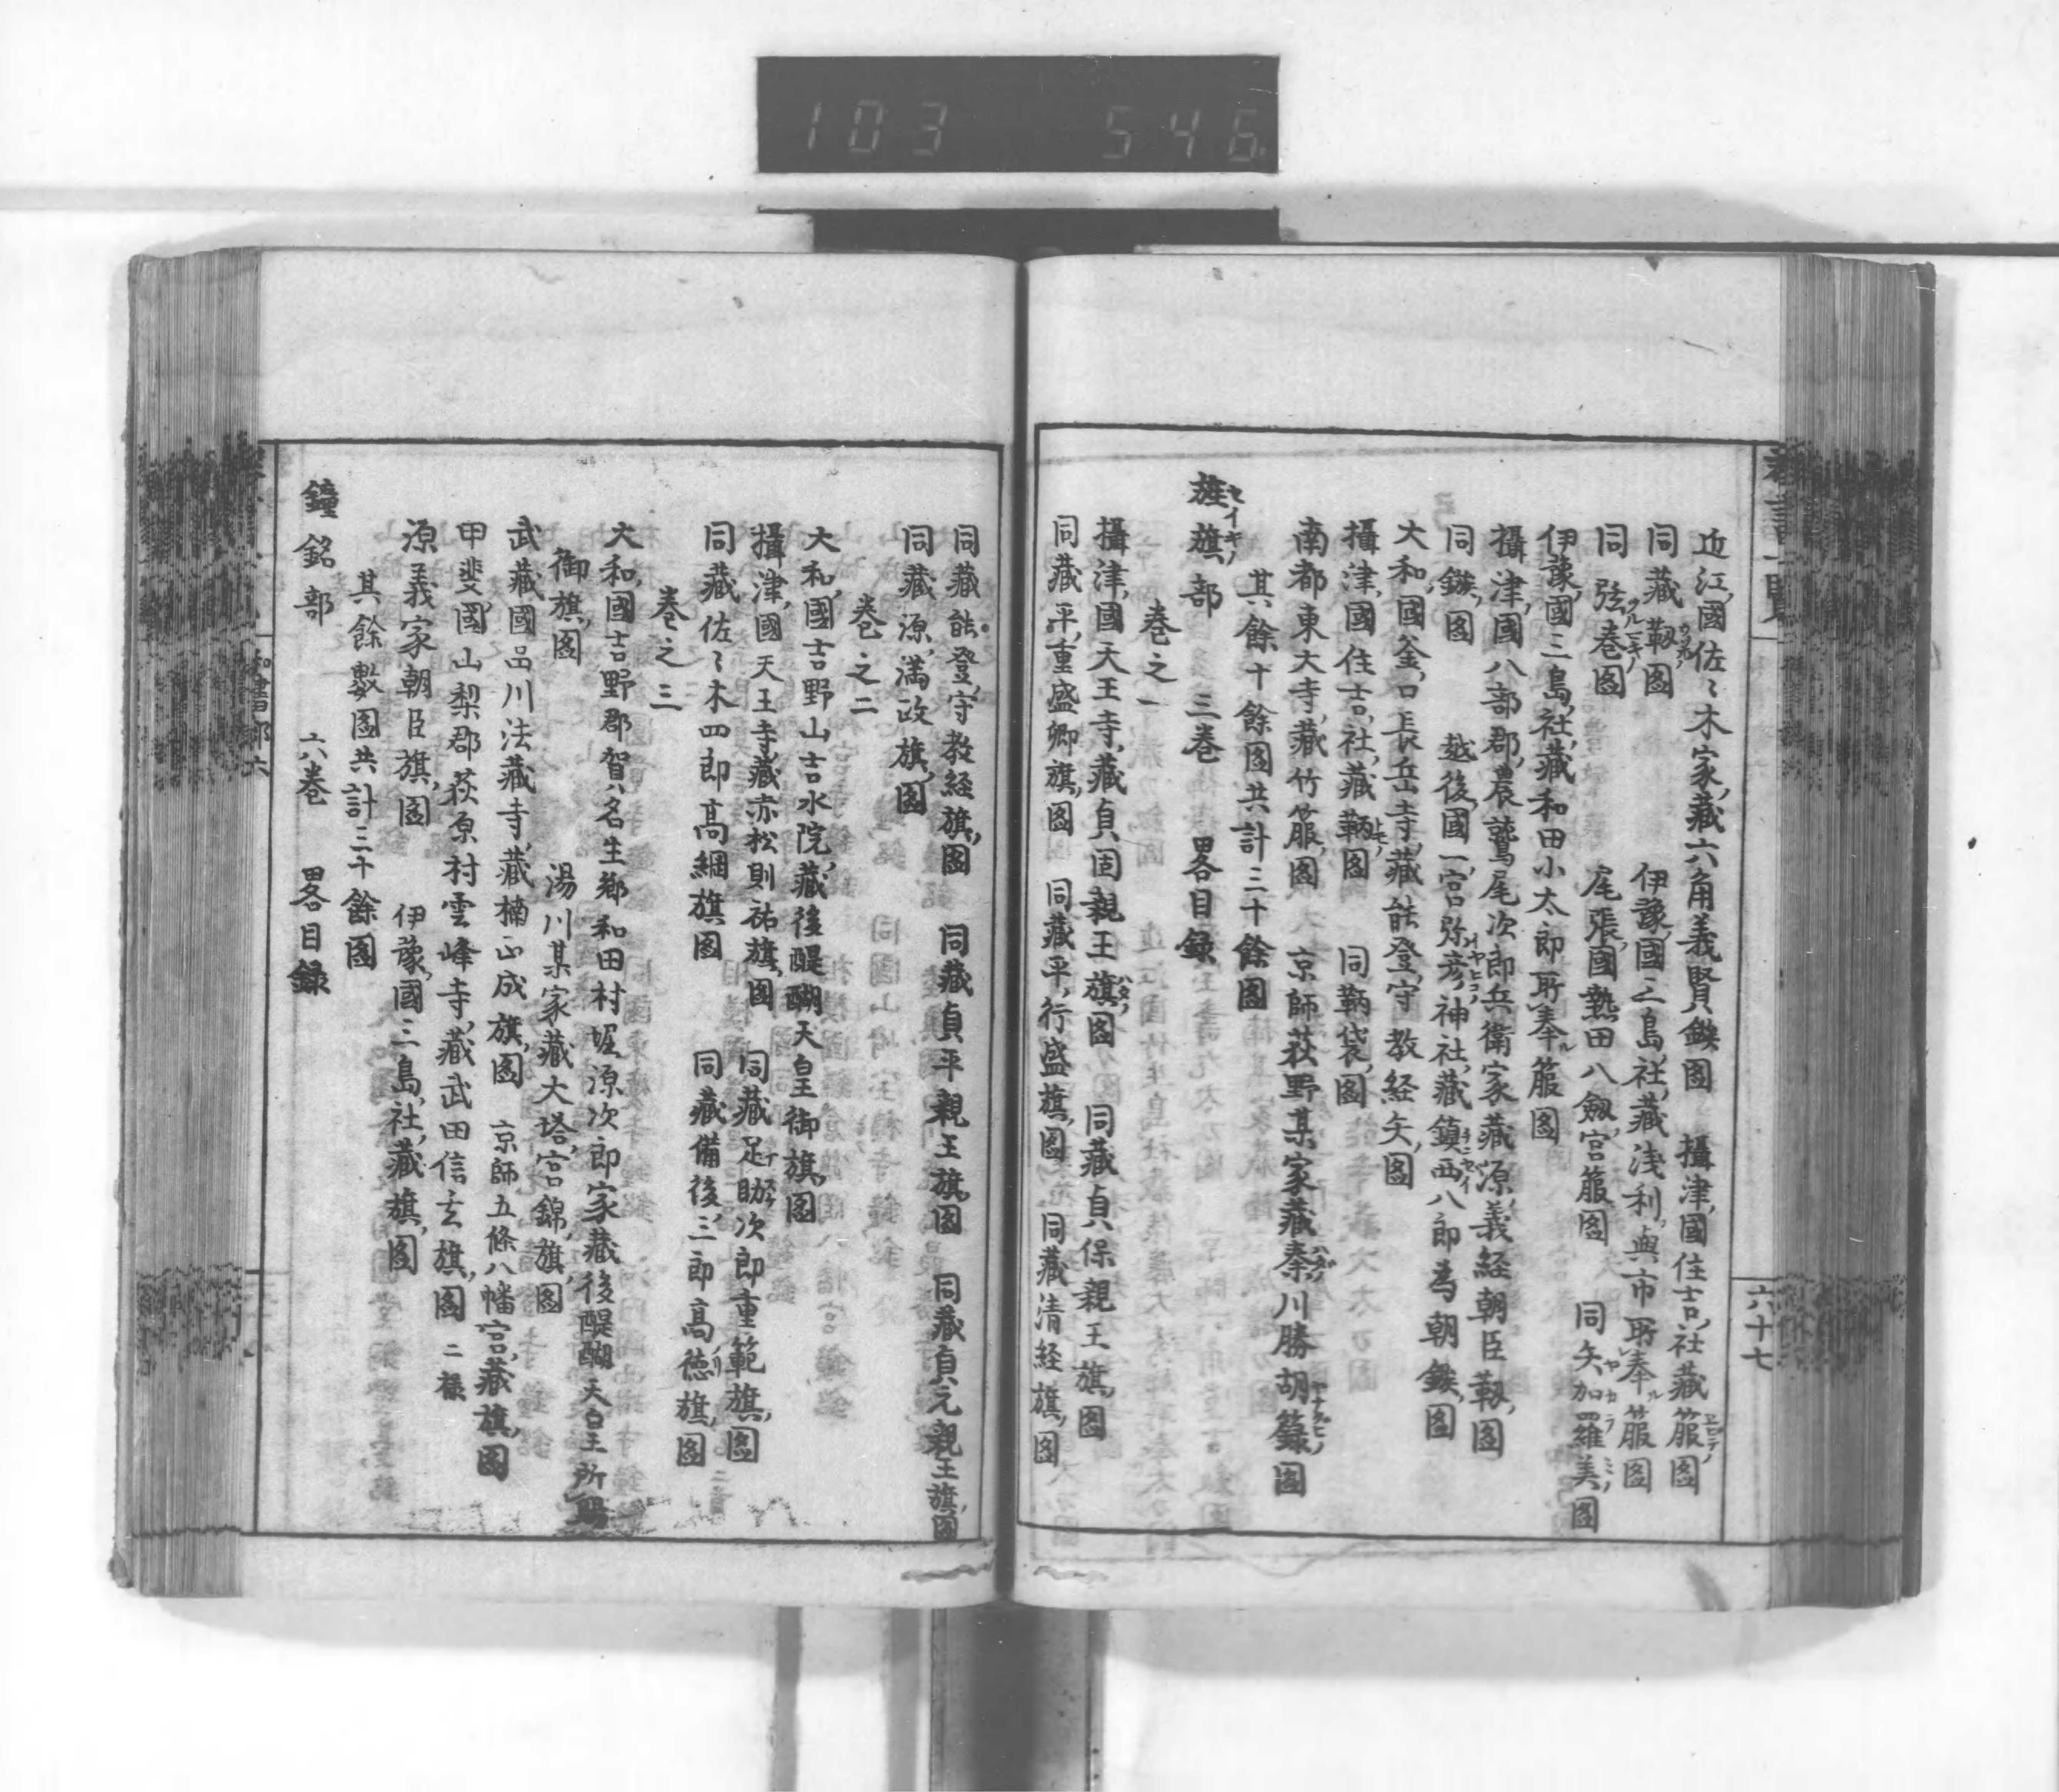 103 546
六十七
近江國佐々木家藏六角義賢鏃圖 攝津國住吉社藏箙圖
同藏靱圖 伊豫國三島社藏浅利與市所奉箙圖
同弦巻圖 尾張國熱田八劔宮箙圖 同矢加羅美圖
伊豫國三島社藏和田小太郎所奉箙圖
攝津國八部郡農鷲尾次郎兵衛家藏源義経朝臣靱圖
同鏃圖 越後國一宮弥彦神社藏鎮西八郎為朝鏃圖
大和國釜口長岳寺藏能登守教経矢圖
攝津國住吉社藏鞆圖 同鞆袋圖
南都東大寺藏竹箙圖 京師荻野某家藏秦川勝胡籙圖
其餘十餘圖共計三十餘圖
旌旗部 三巻 畧目録
巻之一
攝津國天王寺藏貞固親王旗圖 同藏貞保親王旗圖
同藏平重盛卿旗圖 同藏平行盛旗圖 同藏清経旗圖
同藏能登守教経旗圖 同藏貞平親王旗圖 同藏貞元親王旗圖
同藏源満政旗圖
巻之二
大和國吉野山吉水院藏後醍醐天皇御旗圖
攝津國天王寺藏赤松則祐旗圖 同藏足助次郎重範旗圖
同藏佐々木四郎高綱旗圖 同藏備後三郎高徳旗圖
巻之三
大和國吉野郡賀名生郷和田村堀源次郎家藏後醍醐天皇所賜
御旗圖 湯川某家藏大塔宮錦旗圖
武藏國品川法藏寺藏楠正成旗圖 京師五條八幡宮藏旗圖
甲斐國山梨郡荻原村雲峰寺藏武田信玄旗圖 二様
源義家朝臣旗圖 伊豫國三島社藏旗圖
其餘數圖共計三十餘圖
鐘銘部 六巻 畧目録